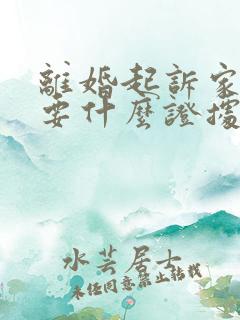 離婚起訴家
要什麼證據
水芸居士
未任同意禁止轉載